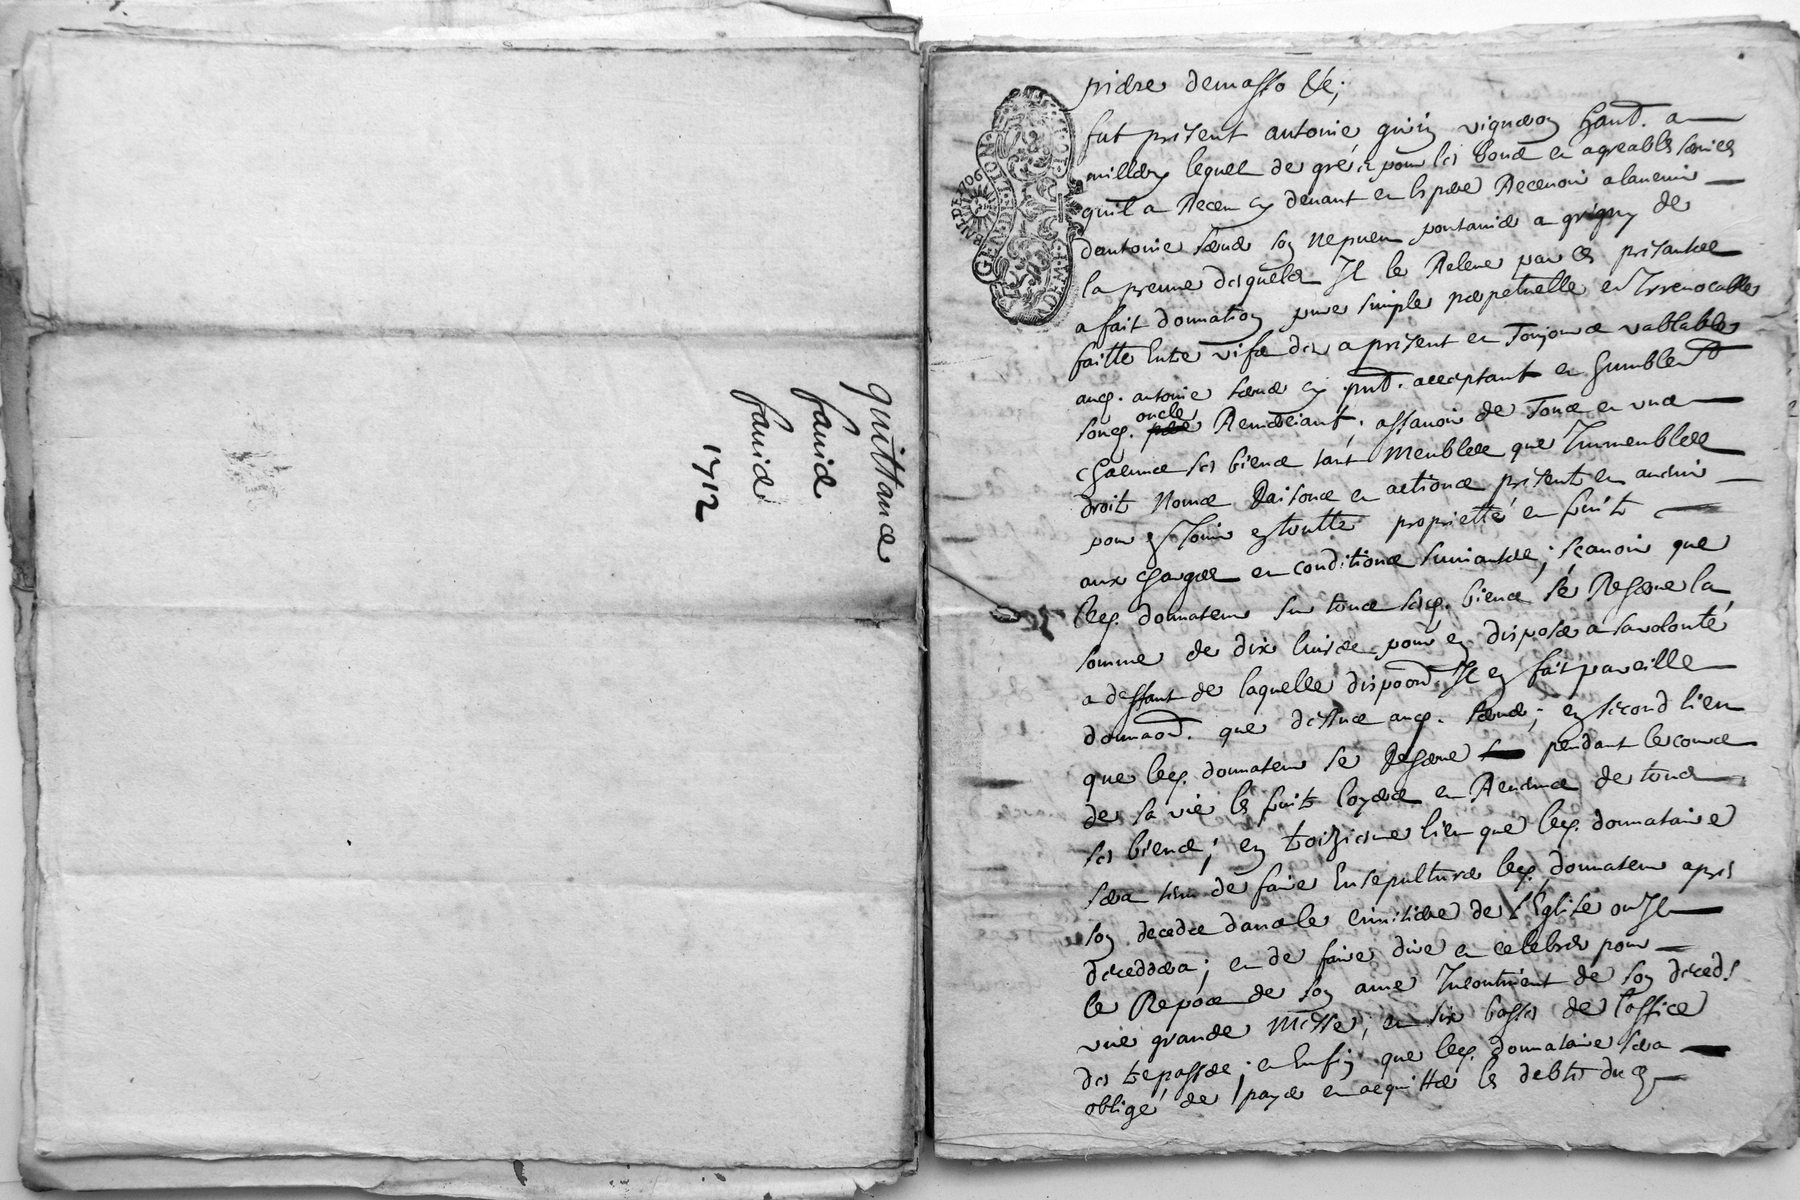 quittance
faure
faure
1712
GEN. DE LION
BAIL DE 706
prière demasso &c;
fut présent antoine givin vigneron habt. a
millery lequel de gré et pour les bons et agreables services
quil a Receu cy devant et espere Recevoir alavenir
dantoine son nepveu a grigny de
la preuve desquels Il le Releve par ces presantes
a fait donnation pure simple perpetuelle et Irrevocable
faitte Entre vifs des a present et Toujours vablable
aud. antoine cy pnt. acceptant et humblemt
sond. oncle Remerciant, assavoir de Tous et uns
chacuns ses biens tant Meubles que Immeubles
droits Noms Raisons et actions présents et
pour en Jouir en toutte propriette et fruits
aux charges et conditions suivantes; scavoir que
led. donnateur sur tous sesd. biens se Reserve la
somme de dix livres pour en disposer a sa volonté
a deffaut de laquelle dispoon. Il en fait pareille
donnaon. que dessus aud. ; en second lieu
que led. donnateur se Reserve pendant le cours
de sa vie les fruits loyers et Revenus de tous
ses biens; en troizieme lieu que led. donnataire
sera tenu de faire Ensepulturer led. donnateur apres
son deceds dans le cimitiere de l'Eglise ou Il
deceddera; et de faire dire et celebrer pour
le Repos de son ame Incontinent de son deceds
une grande Messe, et six basses de l'office
des trepasses; et Enfin que led. donnataire sera
obligé de payer et acquitter les debts du d.